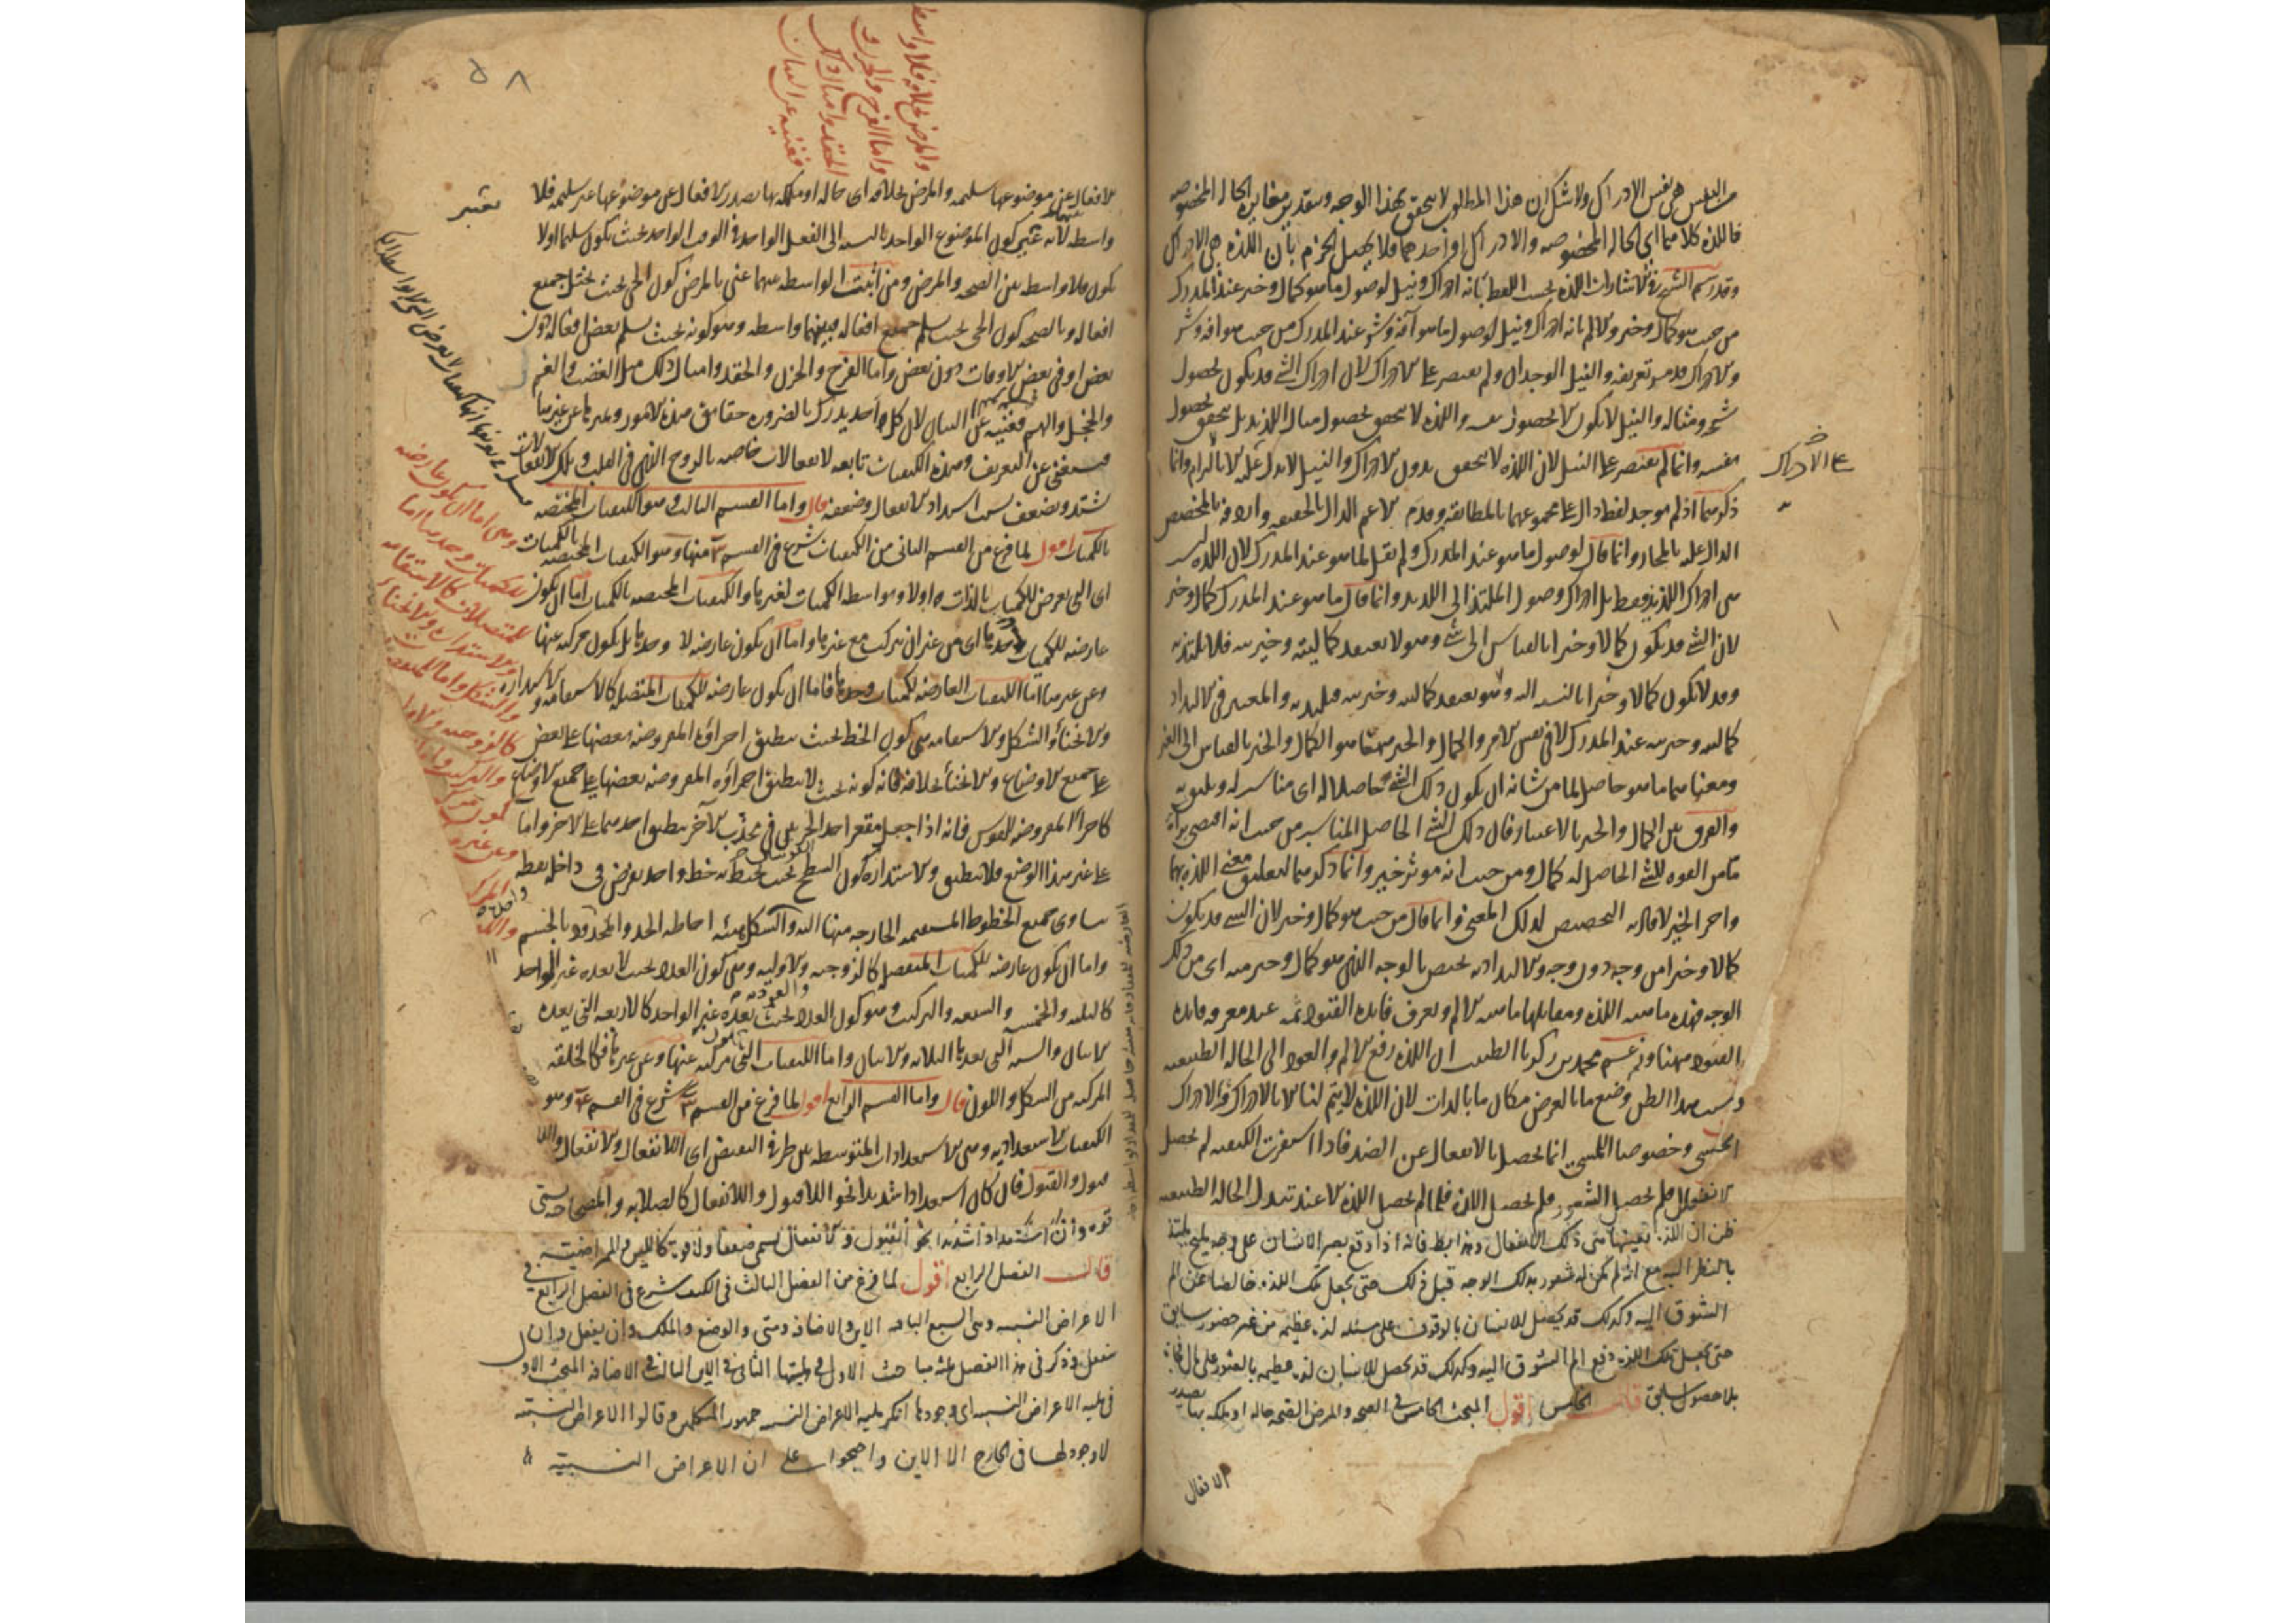 هي نفس الادراك ولا شك ان هذا المطلوب لا يتحقق بهذا الوجه وبتقدير مغايرة الحال المخصوصه
فاللذه كلاهما اى الحاله المخصوصه والادراك او احدهما فلا يحصل الجزم بان اللذه هى الادراك
وقد رسم الشيخ فى الاشارات اللذه بحسب اللفظ بانه ادراك ونيل لوصول ما هو كمال وخير عند المدرك
من حيث هو كمال وخير والالم بانه ادراك ونيل لوصول ما هو آفة وشر عند المدرك من حيث هو آفه وشر
والادراك قد مر تعريفه والنيل الوجدان ولم يقتصر على الادراك لان ادراك الشئ قد يكون بحصول
شبحه ومثاله والنيل لا يكون الا بحصول نفسه واللذه لا تتحقق بحصول مثال اللذيذ بل تتحقق بحصول
نفسه وانما لم يقتصر على النيل لان اللذه لا تتحقق بدون الادراك والنيل لا يدل عليه الا بالالتزام وانما
على الادراك
ذكرهما اذ لم يوجد لفظ دال على مجموعهما بالمطابقه وقدم الاعم الدال بالحقيقه واردفه بالمخصص
الدال عليه بالمجاز وانما قال لوصول ما هو عند المدرك ولم يقل لما هو عند المدرك لان اللذه ليست
هى ادراك اللذيذ فقط بل ادراك وصول الملتذ الى اللذيذ وانما قال ما هو عند المدرك كمال وخير
لان الشئ قد يكون كمالا وخيرا بالقياس الى شئ وهو لا يعتقد كماليته وخيريته فلا يلتذ به
وقد لا يكون كمالا وخيرا بالنسبه اليه وهو يعتقد كماليته وخيريته فيلتذ به والمعتبر فى الالتذاذ
كماليته وخيريته عند المدرك لا فى نفس الامر والكمال والخير ههنا هو الكمال والخير بالقياس الى الغير
ومعناهما ما هو حاصل لما من شانه ان يكون ذلك الشئ حاصلا له اى مناسب له ويليق به
والفرق بين الكمال والخير بالاعتبار فان ذلك الشئ الحاصل المناسب من حيث انه اقتضى براءة
ما من القوه للشئ الحاصل له كمال ومن حيث انه مؤثر خير وانما ذكرهما لتعلق معنى اللذه بهما
واخر الخير لافادته التخصيص لذلك المعنى وانما قال من حيث هو كمال وخير لان الشئ قد يكون
كمالا وخيرا من وجه دون وجه والالتذاذ به يختص بالوجه الذى هو كمال وخير منه اى من ذلك
الوجه فهذه ماهيه اللذه ومقابلها ماهيه الالم وتعرف فائدة القيود ثمه عند معرفه فائده
القيود ههنا وزعم محمد بن زكريا الطبيب ان اللذه دفع الالم والعود الى الحاله الطبيعيه
وسبب هذا الظن وضع ما بالعرض مكان ما بالذات لان اللذه لا يتم لنا الا بالادراك والادراك
الحسى وخصوصا اللمسى انما يحصل بالانفعال عن الضد فاذا استقرت الكيفيه لم يحصل
الانفعال فلم يحصل الشعور فلم يحصل اللذه فلما لم يحصل اللذه الا عند تبدل الحاله الطبيعيه
ظن ان اللذه بعينها هى ذلك الانفعال وهذا باطل فانه اذا وقع بصر الانسان على وجه مليح يلتذ
بالنظر اليه مع انه لم يكن له شعور بذلك الوجه قبل ذلك حتى يجعل تلك اللذه خلاصا عن الم
الشوق اليه وكذلك قد يحصل للانسان بالوقوف على مسئله لذه عظيمه من غير حضور سابق
حتى يجعل تلك اللذه دفع الم الشوق اليه وكذلك قد يحصل للانسان لذه عظيمه بالعثور على مال فجاة
بلا حصول سابق قال الخامس اقول المبحث الخامس فى الصحه والمرض الصحه حاله او ملكه بها يصدر
الافعال
٥٨
والمرض بخلافه فلا واسطه
واما الفرح والحزن و
الحقد وامثال ذلك
فغنيه عن البيان
الافعال عن موضوعها سليمه والمرض بخلافه اى حاله او ملكه بها يصدر الافعال عن موضوعها غير سليمه فلا
واسطه بينهما لانه يعتبر كون الموضوع الواحد بالنسبه الى الفعل الواحد فى الوقت الواحد بحيث يكون سليما اولا
يكون فلا واسطه بين الصحه والمرض ومن اثبت الواسطه بينهما عنى بالمرض كون الحى بحيث يختل جميع
افعاله وبالصحه كون الحى بحيث يسلم جميع افعاله فبينهما واسطه وهو كونه بحيث يسلم بعض افعاله دون
بعض او فى بعض الاوقات دون بعض واما الفرح والحزن والحقد وامثال ذلك مثل الغضب والغم
والخجل والهم فغنيه عن البيان لان كل واحد يدرك بالضروره حقائق هذه الامور وغيرها عن غيرها
مستغنى عن التعريف وهذه الكيفيات تابعه لانفعالات خاصه بالروح الذى فى القلب وتلك الانفعالات
تشتد وتضعف بسبب اشتداد الانفعال وضعفه قال واما القسم الثالث وهو الكيفيات المختصه
بالكميات اقول لما فرغ من القسم الثانى من الكيفيات شرع فى القسم ٣ منها وهو الكيفيات المختصه بالكميات
اى التى تعرض للكميات بالذات واولا وبواسطه الكميات لغيرها والكيفيات المختصه بالكميات اما ان يكون
عارضه للكميات وحدها اى من غير ان يتركب مع غيرها واما ان يكون عارضه لا وحدها بل يكون مركبه عنها
وعن غيرها اما الكيفيات العارضه للكميات وحدها فاما ان يكون عارضه للكميات المتصله كالاستقامه والاستداره
والانحناء والشكل والاستقامه هى كون الخط بحيث ينطبق اجزاؤه المفروضه بعضها على بعض
على جميع الاوضاع والانحناء بخلافه فانه كونه بحيث لا ينطبق اجزاؤه المفروضه بعضها على جميع الاوضاع
كاجزاء المفروضه للقوس فانه اذا جعل مقعر احد الجزئين فى محدب الآخر ينطبق احدهما على الاخر واما
على غير هذا الوضع فلا ينطبق والاستداره كون السطح بحيث يحيط به خط واحد يفرض فى داخله نقطه
يساوى جميع الخطوط المستقيمه الخارجه منها اليه والشكل هيئه احاطه الحد والحدود بالجسم
واما ان يكون عارضه للكميات المنفصله كالزوجيه والاوليه وهى كون العدد بحيث لا يعده غير الواحد
كالثلثه والخمسه والسبعه والتركيب وهو كون العدد بحيث يعده غير الواحد كالاربعه التى يعده
الاثنان والسته التى يعدها الثلاثه والاثنان واما الكيفيات التى يكون مركبه عنها وعن غيرها فكالخلقه
المركبه من الشكل واللون قال واما القسم الرابع اقول لما فرغ من القسم ٣ شرع فى القسم ٤ وهو
الكيفيات الاستعداديه وهى الاستعدادات المتوسطه بين طرفى النقيض اى اللا انفعال والانفعال واللا
قبول والقبول فان كان استعدادا شديدا نحو اللاقبول واللا انفعال كالصلابه والمصحاحيه يسمى
قوه وان كان استعدادا شديدا نحو القبول والانفعال يسمى ضعفا ولا قوه كاللين والممراضيه
قال الفصل الرابع اقول لما فرغ من الفصل الثالث فى الكيف شرع فى الفصل الرابع فى
الاعراض النسبيه وهى السبع الباقيه الاين والاضافه ومتى والوضع والملك وان يفعل وان
ينفعل وذكر فى هذا الفصل ثلثه مباحث الاول فى هليتها الثانى فى الاين الثالث فى الاضافه المبحث الاول
فى هليه الاعراض النسبيه اى وجودها انكر هليه الاعراض النسبيه جمهور المتكلمين وقالوا الاعراض النسبيه
لا وجود لها فى الخارج الا الاين واحتجوا على ان الاعراض النسبيه